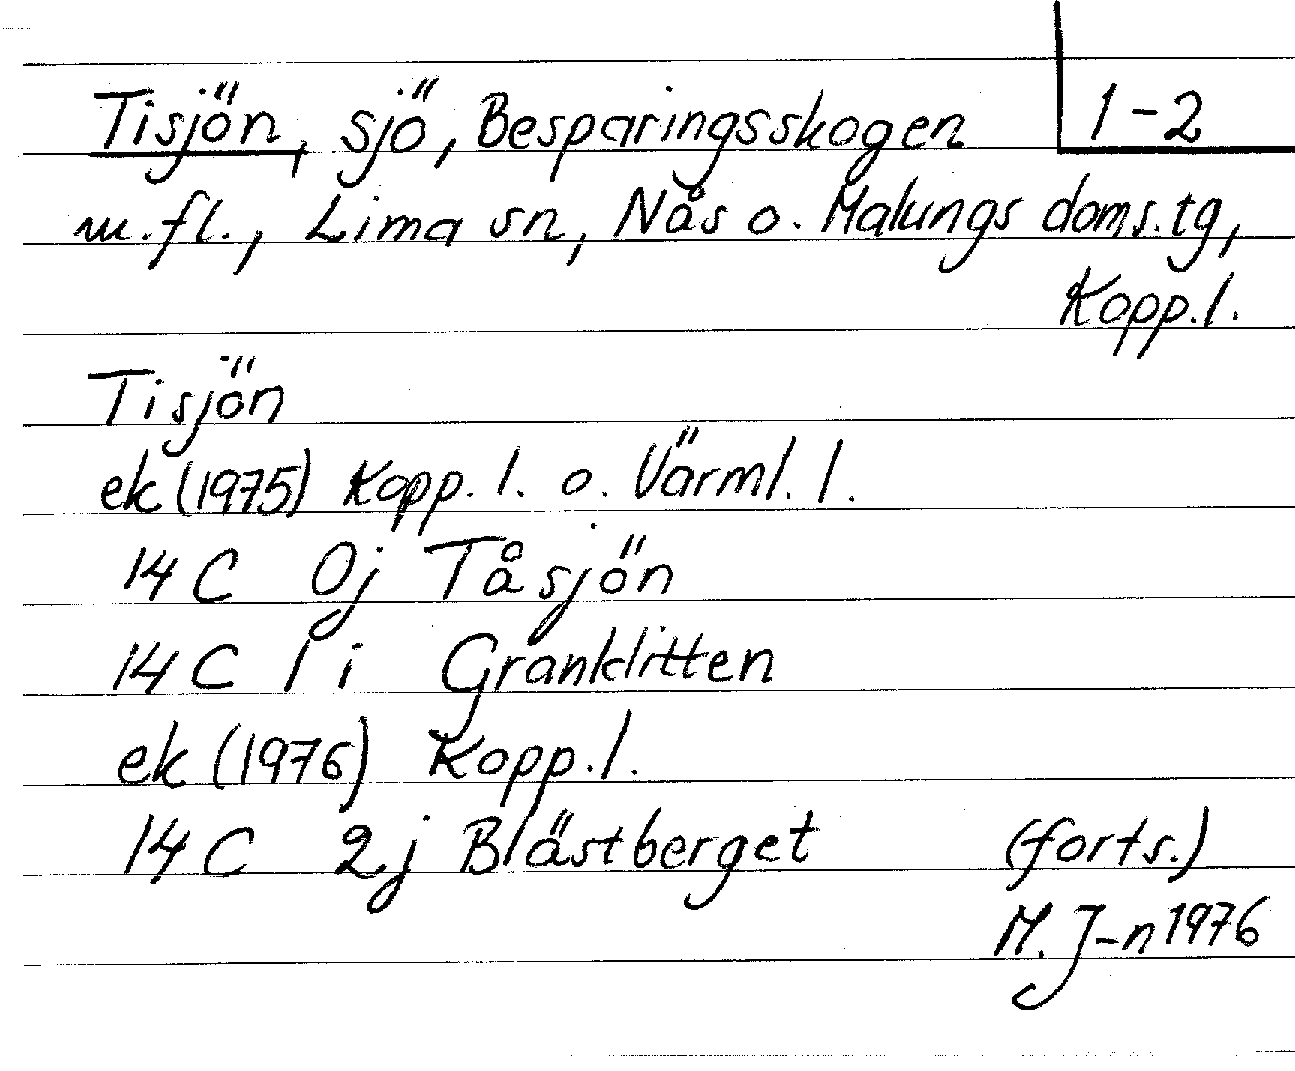 Tisjön, sjö, Besparingsskogen 1-2
m.fl., Lima sn, Nås o. Malungs doms.tg,
Kopp.l.
Tisjön
ek (1975) Kopp. l. o. Värml. l.
14 C 0j Tåsjön
14 C 1 i Granklitten
ek (1976) Kopp.l.
14 C 2j Blästberget (forts.)
M. J-n 1976